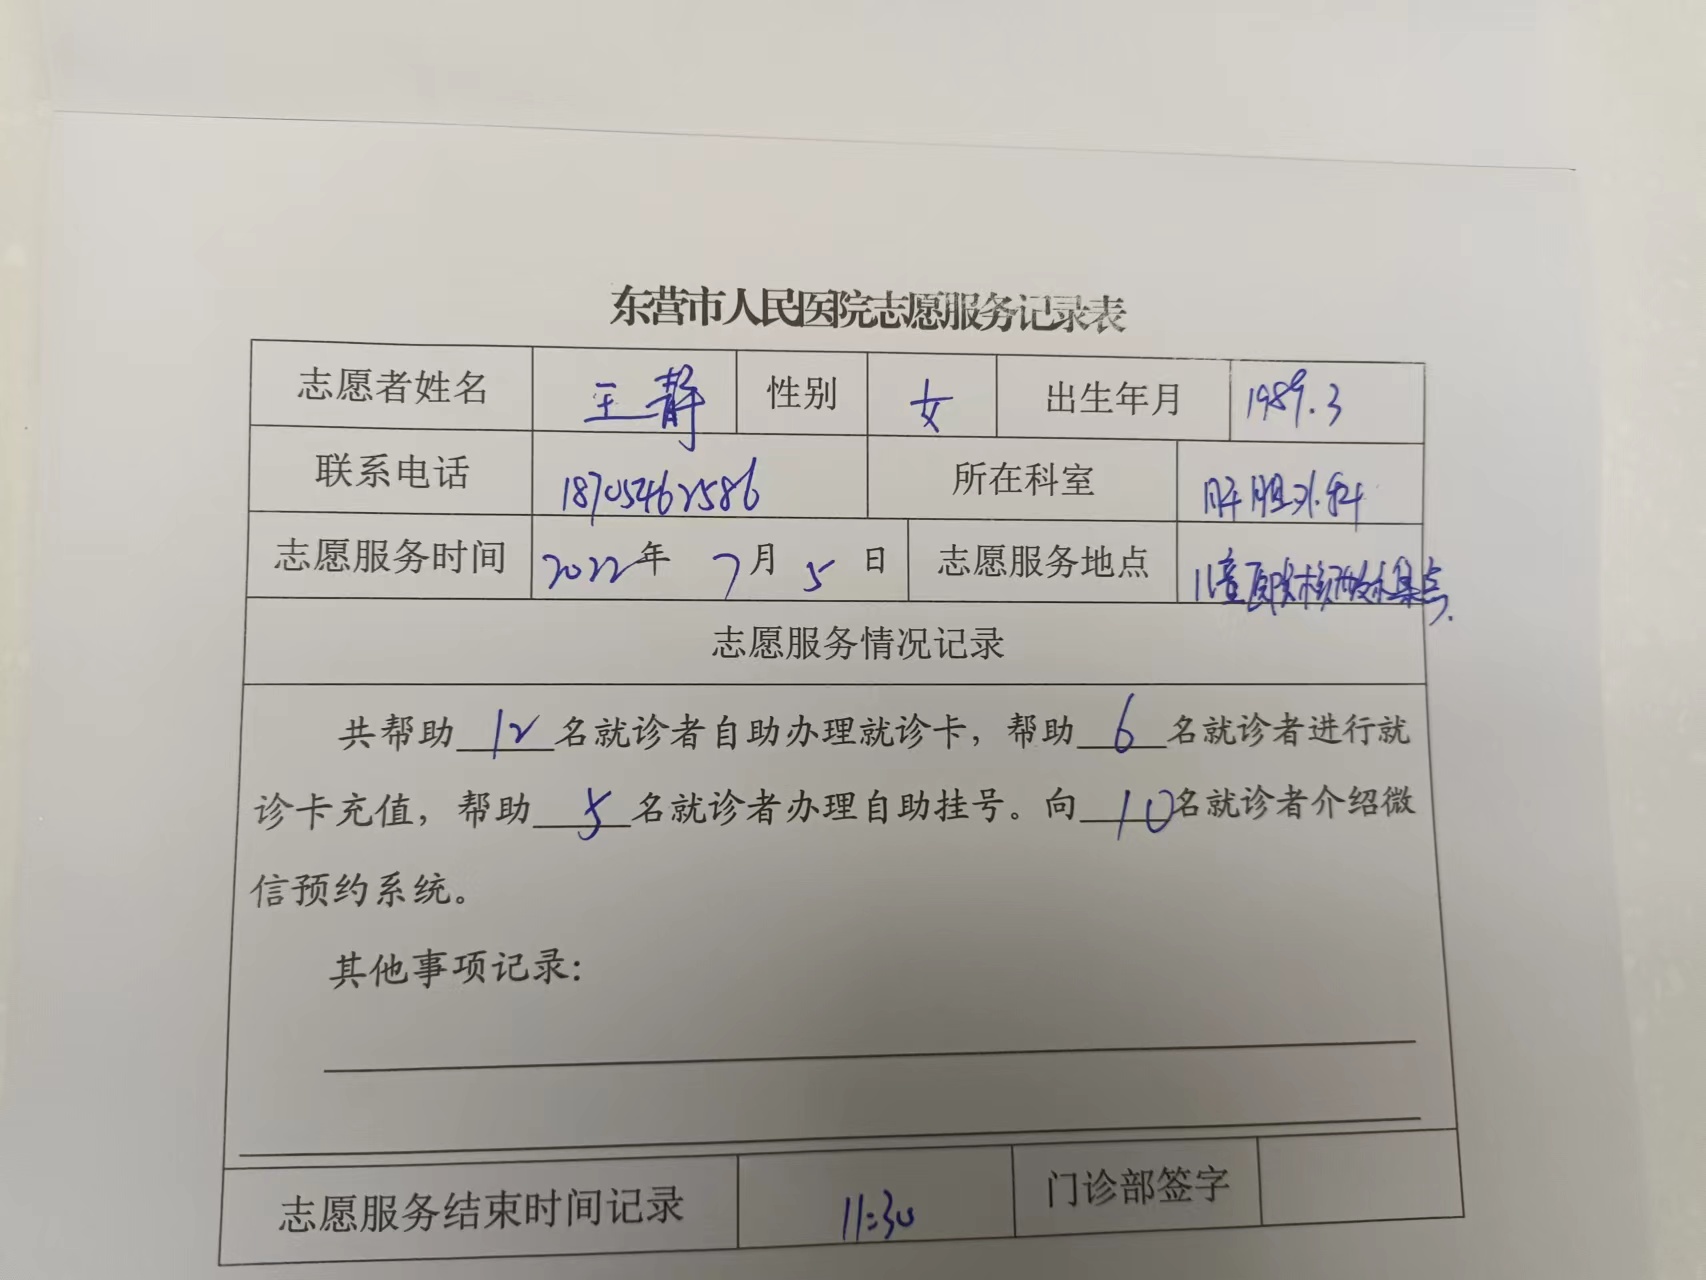 东营市人民医院志愿服务记录表
志愿者姓名 王静 性别 女 出生年月 1989.3
联系电话 18705462586 所在科室 肝胆外科
志愿服务时间 2022年 7月 5日 志愿服务地点 儿童医院核酸采集点.
志愿服务情况记录
共帮助12名就诊者自助办理就诊卡，帮助6名就诊者进行就
诊卡充值，帮助5名就诊者办理自助挂号。向10名就诊者介绍微
信预约系统。
其他事项记录：
志愿服务结束时间记录 11:30 门诊部签字